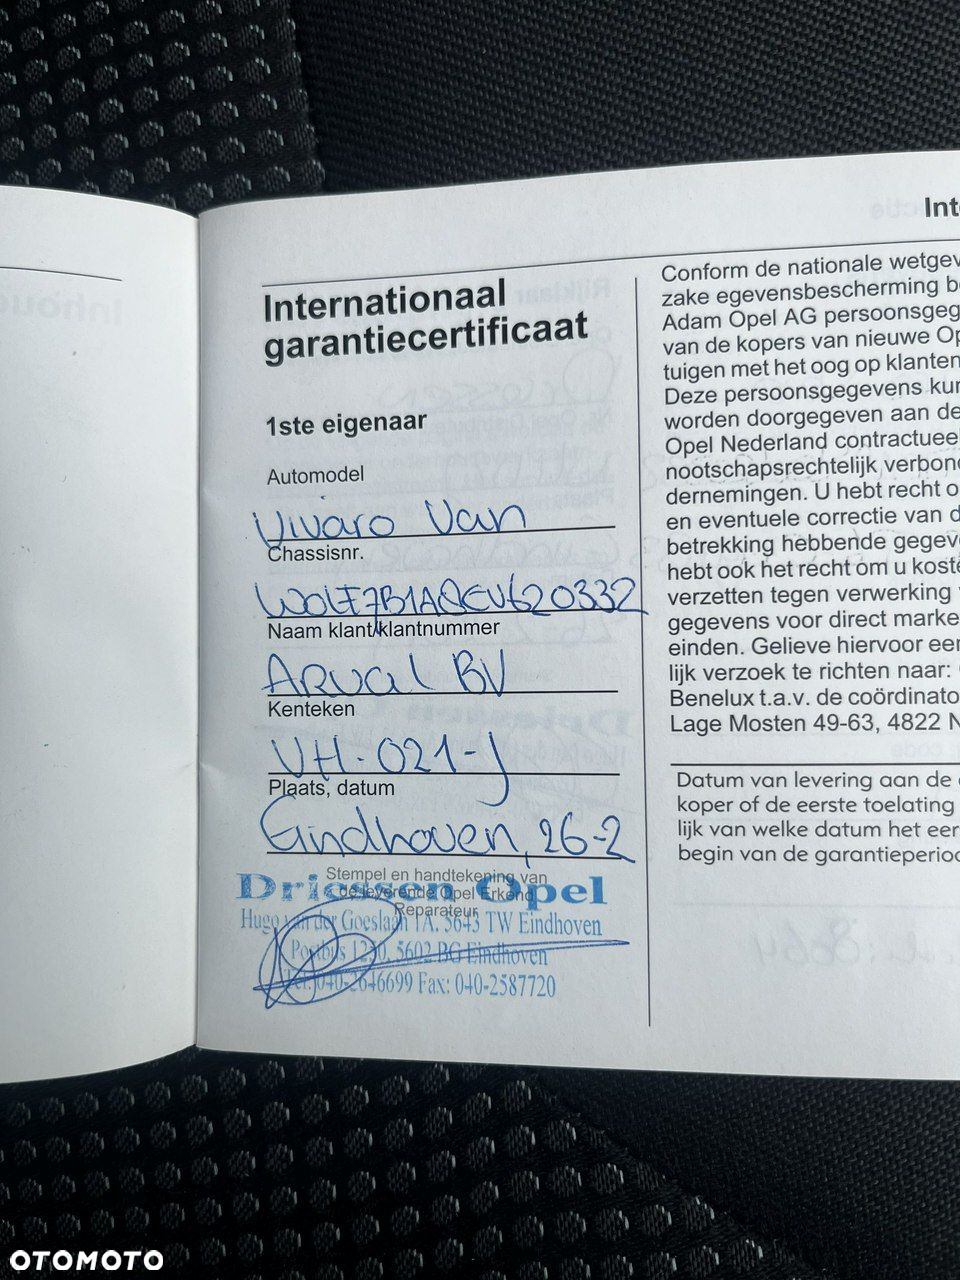 Internationaal
garantiecertificaat
1ste eigenaar
Automodel
Vivaro Van
Chassisnr.
W0LF7B1A8EV620332
Naam klant/klantnummer
Arval BV
Kenteken
VH-021-J
Plaats, datum
Eindhoven, 26-2
Stempel en handtekening van
de leverende Opel Erkend
Reparateur
Driessen Opel
Hugo van der Goeslaan 1A. 5643 TW Eindhoven
Postbus 1230, 5602 BG Eindhoven
Tel: 040-2646699 Fax: 040-2587720
Int
Conform de nationale wetgev
zake egevensbescherming b
Adam Opel AG persoonsgeg
van de kopers van nieuwe Op
tuigen met het oog op klanten
Deze persoonsgegevens kun
worden doorgegeven aan de
Opel Nederland contractueel
nootschapsrechtelijk verbond
dernemingen. U hebt recht o
en eventuele correctie van d
betrekking hebbende gegeve
hebt ook het recht om u koste
verzetten tegen verwerking v
gegevens voor direct marke
einden. Gelieve hiervoor een
lijk verzoek te richten naar:
Benelux t.a.v. de coördinato
Lage Mosten 49-63, 4822 N
Datum van levering aan de
koper of de eerste toelating
lijk van welke datum het eer
begin van de garantieperiod
OTOMOTO